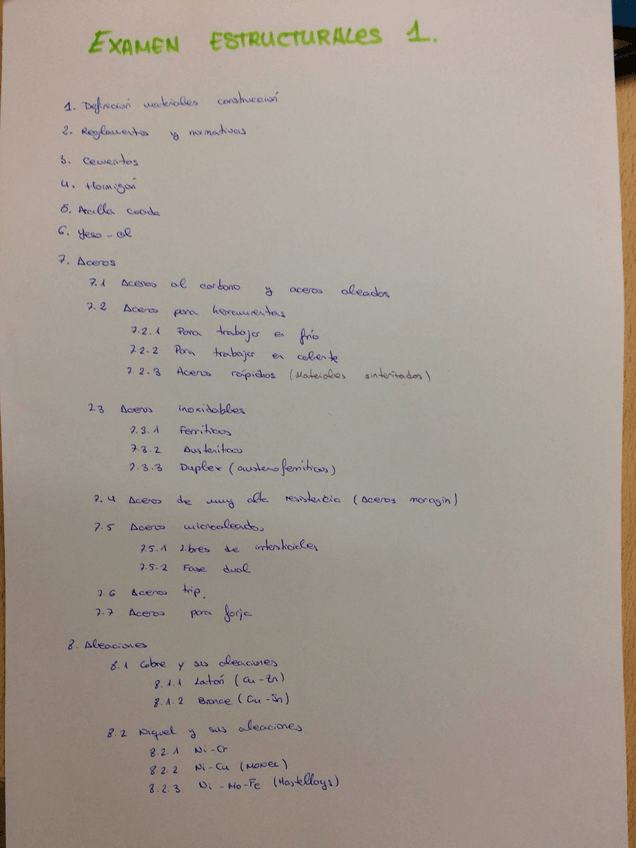 EXAMEN ESTRUCTURALES 1.
1. Definición materiales construcción
2. Reglamentos y normativas
3. Cementos
4. Hormigón
5. Arcilla cocida
6. Yeso - cal
7. Aceros
7.1 Aceros al carbono y aceros aleados
7.2 Aceros para herramientas
7.2.1 Para trabajar en frío
7.2.2 Para trabajar en caliente
7.2.3 Aceros rápidos (Materiales sinterizados)
7.3 Aceros inoxidables
7.3.1 Ferríticos
7.3.2 Austeníticos
7.3.3 Duplex (austenoferríticos)
7.4 Aceros de muy alta resistencia (Aceros maragin)
7.5 Aceros microaleados
7.5.1 Libres de intersticiales
7.5.2 Fase dual
7.6 Aceros trip.
7.7 Aceros para forja
8. Aleaciones
8.1 Cobre y sus aleaciones
8.1.1 Latón (Cu-Zn)
8.1.2 Bronce (Cu-Sn)
8.2 Niquel y sus aleaciones
8.2.1 Ni-Cr
8.2.2 Ni-Cu (MONEL)
8.2.3 Ni-Mo-Fe (Hastelloys)